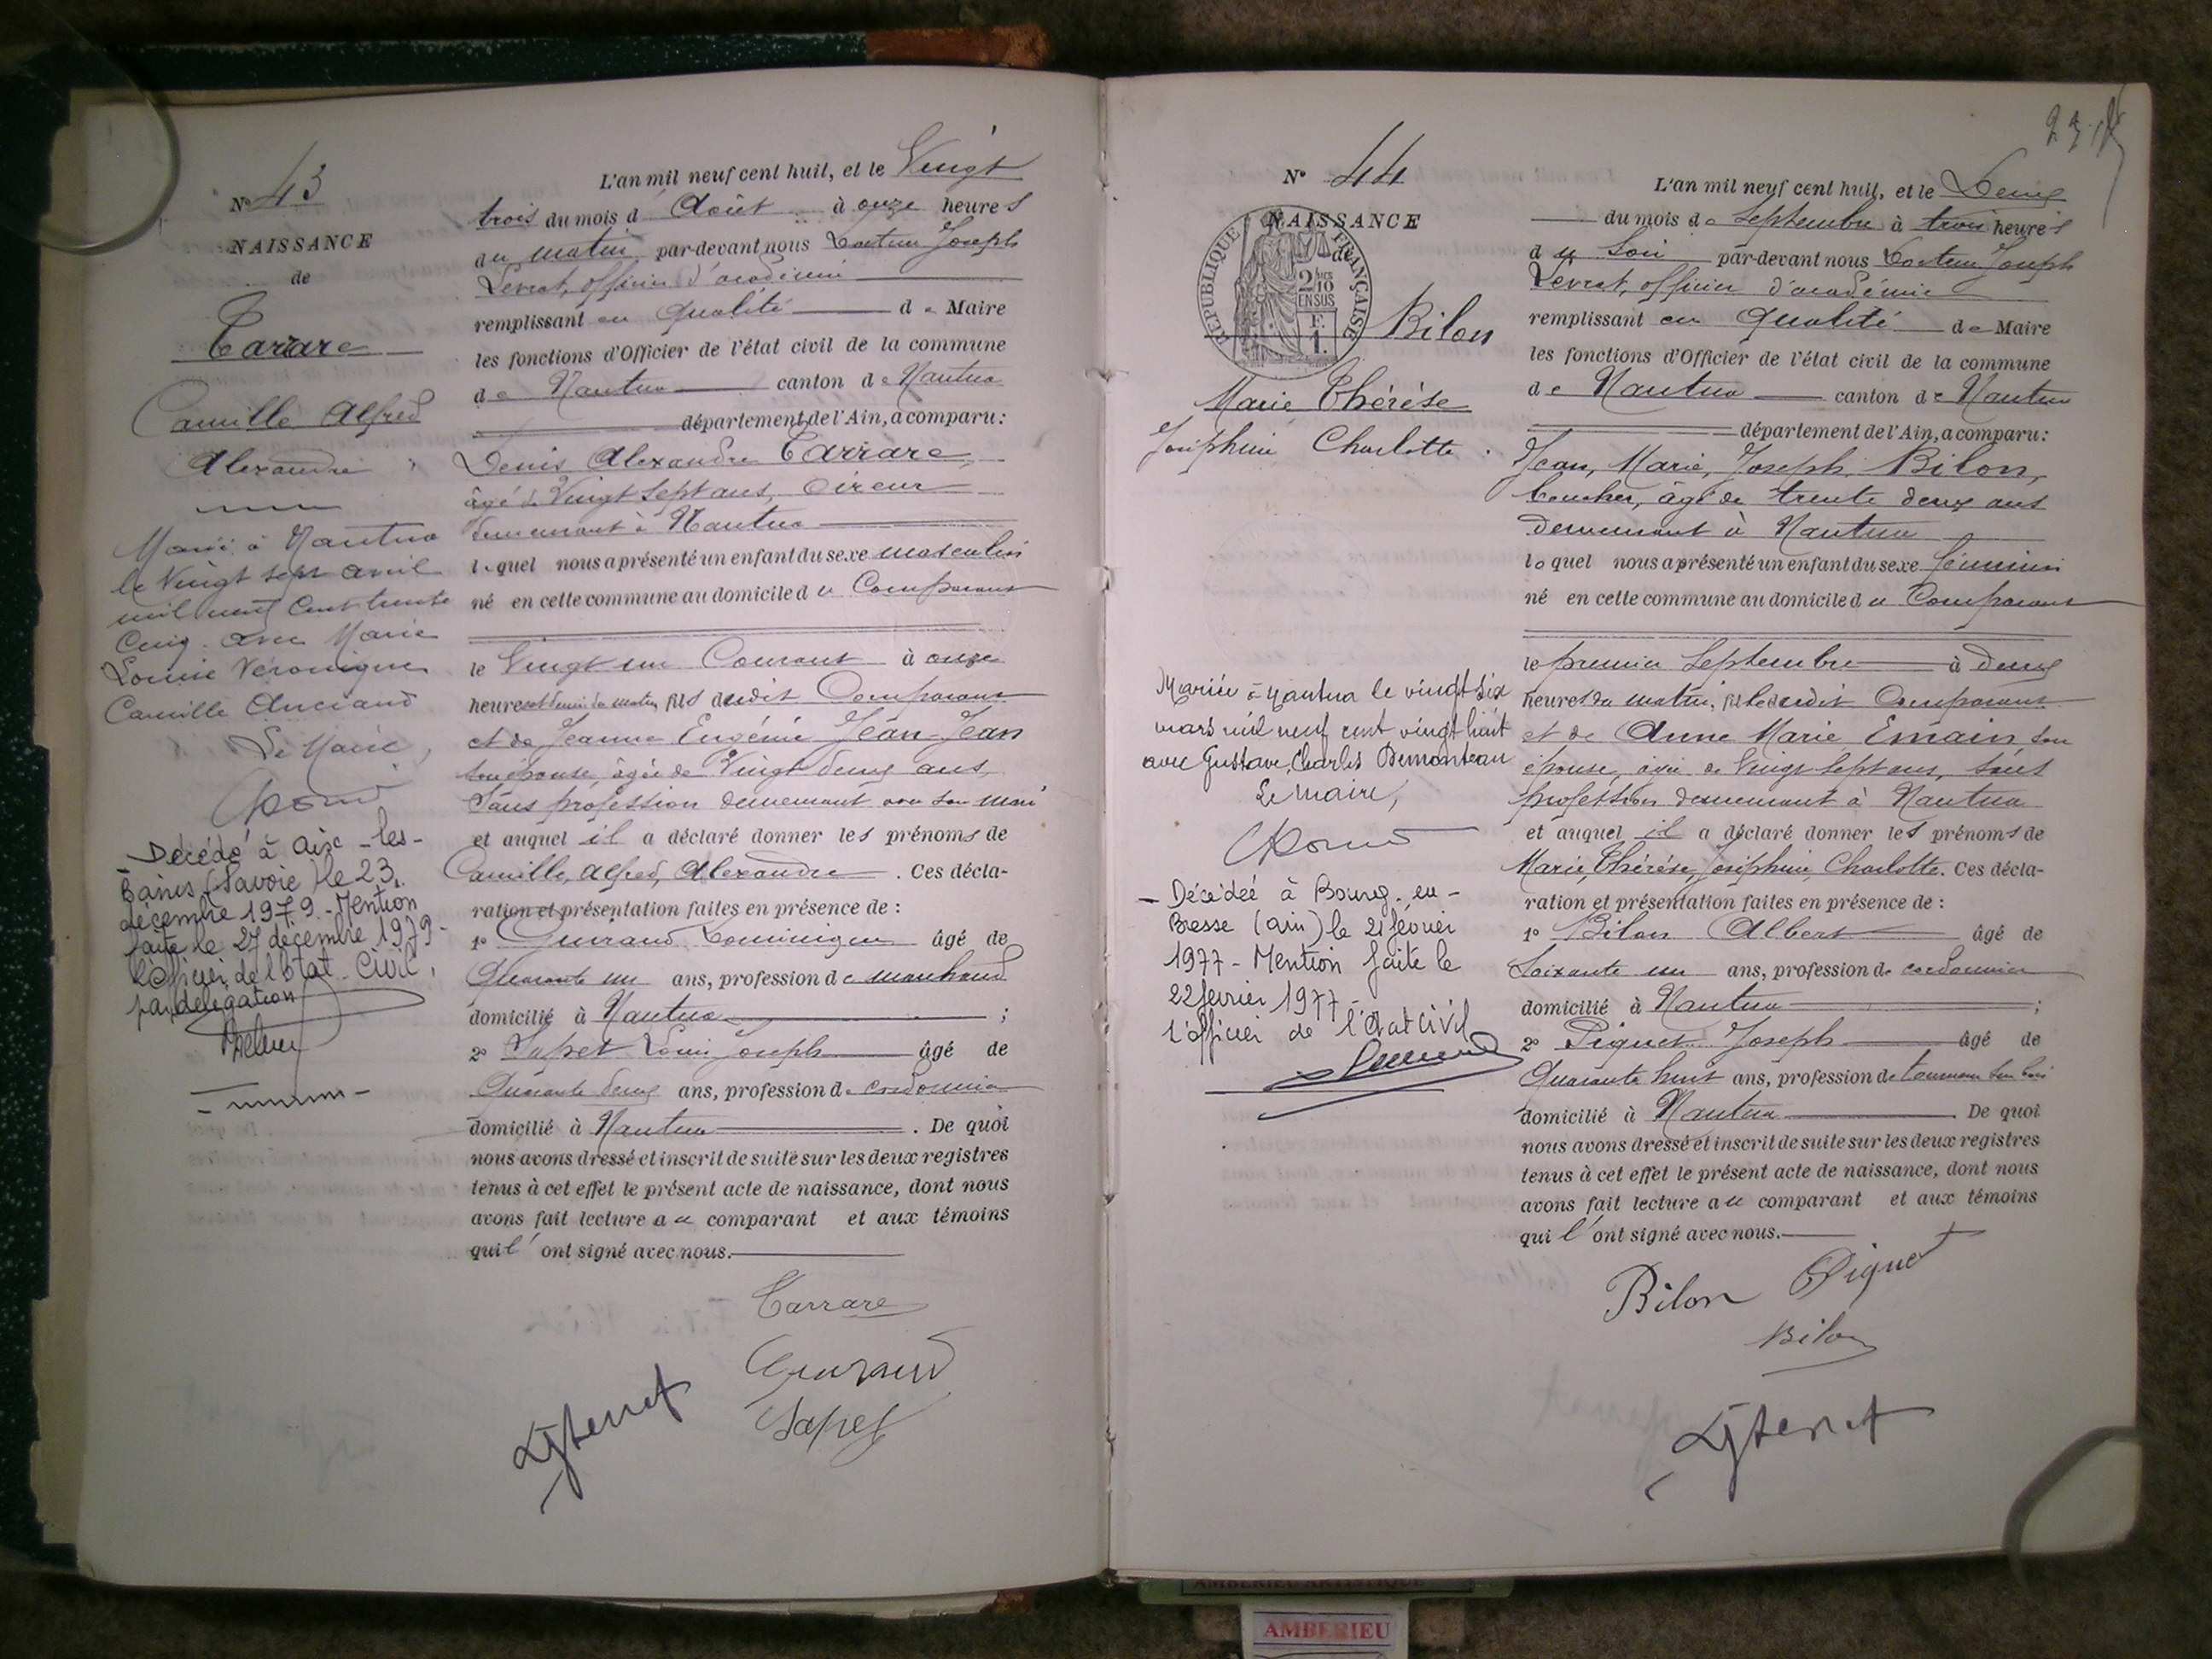 Nº 43
NAISSANCE
de
Carrare
Camille Alfred
Alexandre
Marié à Nantua
le Vingt sept avril
mil neuf Cent trente
Cinq avec Marie
Louise Véronique
Camille Anciand
Le Maire,
Décédé à Aix-les-
Bains (Savoie) le 23
décembre 1979 - Mention
faite le 27 décembre 1979 -
L'Officier de l'Etat Civil,
par délégation
L'an mil neuf cent huit, et le Vingt
trois du mois d Août à onze heures
du matin par-devant nous Docteur Joseph
Levrat, officier d'académie
remplissant en qualité de Maire
les fonctions d'Officier de l'état civil de la commune
de Nantua canton de Nantua
département de l'Ain, a comparu :
Denis Alexandre Carrare,
âgé de Vingt sept ans, Cireur
demeurant à Nantua
lequel nous a présenté un enfant du sexe masculin
né en cette commune au domicile du Comparant
le Vingt un Courant à onze
heures et demie du matin, fils dudit Comparant
et de Jeanne Eugénie Jean-Jean
son épouse, âgée de Vingt deux ans,
Sans profession demeurant avec son mari
et auquel il a déclaré donner les prénoms de
Camille, Alfred, Alexandre. Ces décla-
ration et présentation faites en présence de :
1º Guiraud Dominique âgé de
Quarante un ans, profession de marchand
domicilié à Nantua ;
2º Sapet Louis Joseph âgé de
Quarante deux ans, profession de cordonnier
domicilié à Nantua. De quoi
nous avons dressé et inscrit de suite sur les deux registres
tenus à cet effet le présent acte de naissance, dont nous
avons fait lecture au comparant et aux témoins
qui l'ont signé avec nous.
Carrare
Guiraud
Sapet
Nº 44
NAISSANCE
de
REPUBLIQUE FRANÇAISE
2/10
EN SUS
F.
1.
Bilon
Marie Thérèse
Joséphine Charlotte.
Mariée à Nantua le vingt six
mars mil neuf cent vingt huit
avec Gustave, Charles Demonteau
Le Maire,
- Décédée à Bourg-en-
Bresse (Ain) le 21 février
1977 - Mention faite le
22 février 1977 -
L'officier de l'Etat Civil
L'an mil neuf cent huit, et le Deux
du mois de Septembre à trois heures
du Soir par-devant nous Docteur Joseph
Levrat, officier d'académie
remplissant en qualité de Maire
les fonctions d'Officier de l'état civil de la commune
de Nantua canton de Nantua
département de l'Ain, a comparu :
Jean, Marie, Joseph Bilon,
boucher, âgé de trente deux ans
demeurant à Nantua
lequel nous a présenté un enfant du sexe féminin
né en cette commune au domicile du Comparant
le premier Septembre à deux
heures du matin, fille dudit Comparant
et de Anne Marie Emain son
épouse, âgée de Vingt sept ans, sans
profession demeurant à Nantua
et auquel il a déclaré donner les prénoms de
Marie, Thérèse, Joséphine, Charlotte. Ces décla-
ration et présentation faites en présence de :
1º Bilon Albert âgé de
Soixante un ans, profession de cordonnier
domicilié à Nantua ;
2º Piguet Joseph âgé de
Quarante huit ans, profession de tourneur sur bois
domicilié à Nantua. De quoi
nous avons dressé et inscrit de suite sur les deux registres
tenus à cet effet le présent acte de naissance, dont nous
avons fait lecture au comparant et aux témoins
qui l'ont signé avec nous.
Bilon Piguet
Bilon
AMBERIEU ARTISTIQUE
AMBERIEU